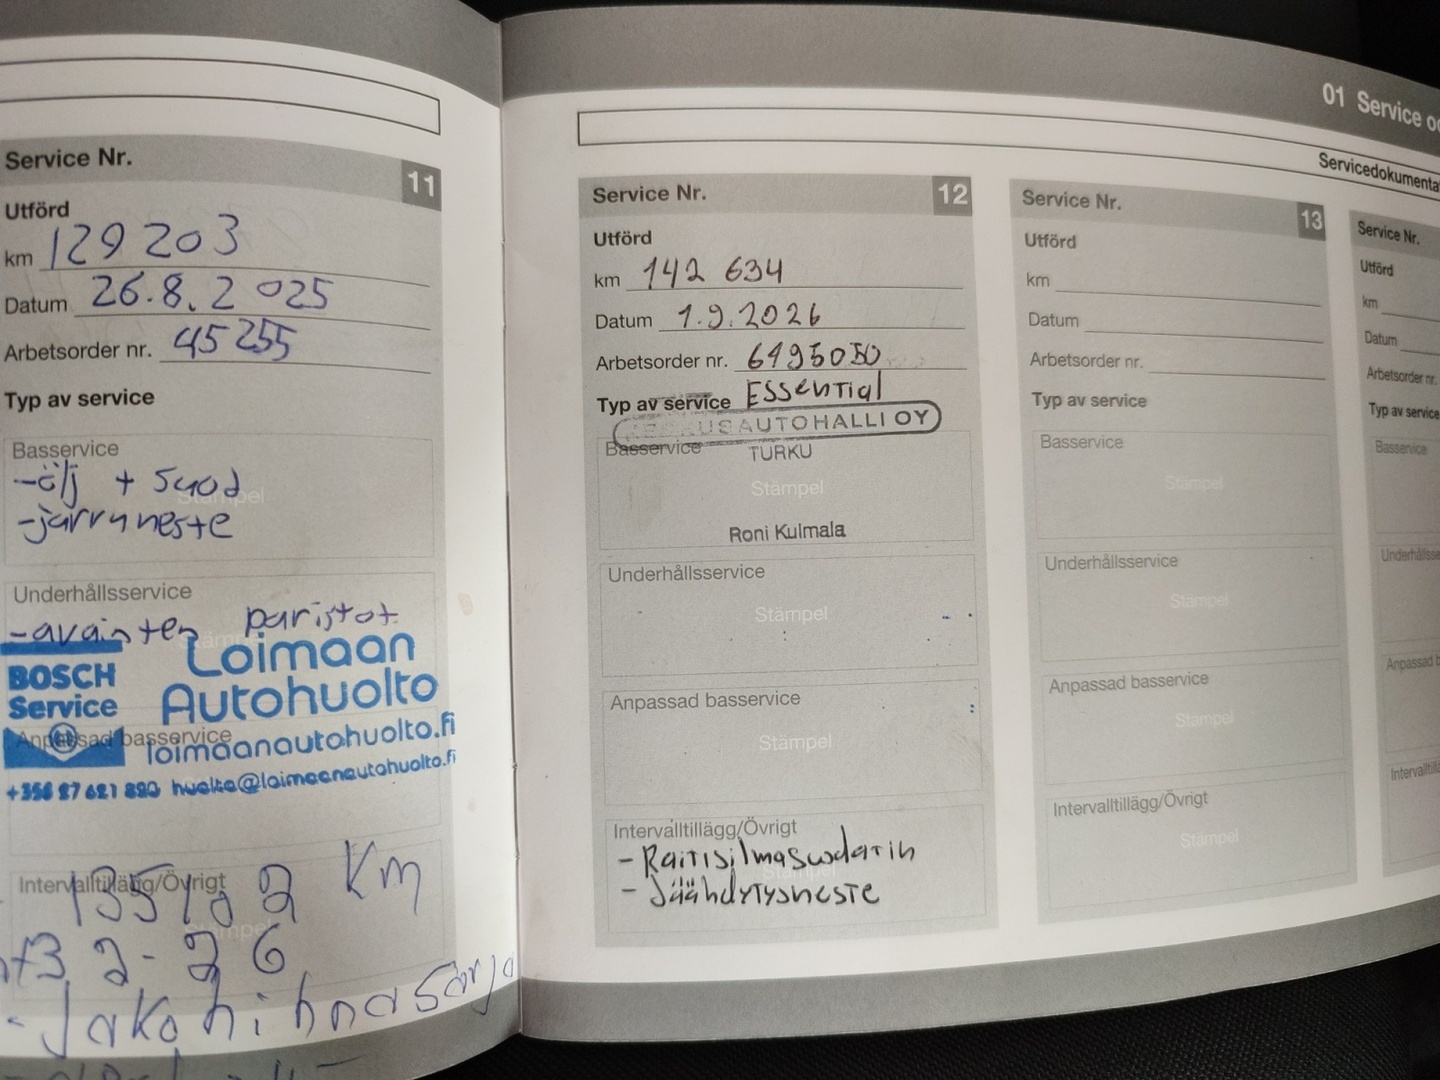 Service Nr. 11
Utförd
km 129 203
Datum 26.8.2025
Arbetsorder nr. 45255
Typ av service
Basservice
-ölj + suod
Stämpel
-jarruneste
Underhållsservice
-avainten paristot
Stämpel
BOSCH
Service
Loimaan
Autohuolto
Anpassad basservice
loimaanautohuolto.fi
huolto@loimaanautohuolto.fi
Intervalltillägg/Övrigt
Km
Stämpel
2-26
- Jakohihnasarja
01 Service
Servicedokumenta
Service Nr. 12
Utförd
km 142 634
Datum 1.9.2026
Arbetsorder nr. 6495050
Typ av service Essential
AUTOHALLI OY
Basservice
TURKU
Stämpel
Roni Kulmala
Underhållsservice
Stämpel
Anpassad basservice
Stämpel
Intervalltillägg/Övrigt
- Raitisilmasuodatin
Stämpel
- Jäähdytysneste
Service Nr. 13
Utförd
km
Datum
Arbetsorder nr.
Typ av service
Basservice
Stämpel
Underhållsservice
Stämpel
Anpassad basservice
Stämpel
Intervalltillägg/Övrigt
Stämpel
Service Nr.
Utförd
km
Datum
Arbetsorder nr.
Typ av service
Basservice
Underhållsse
Anpassad b
Intervalltillä